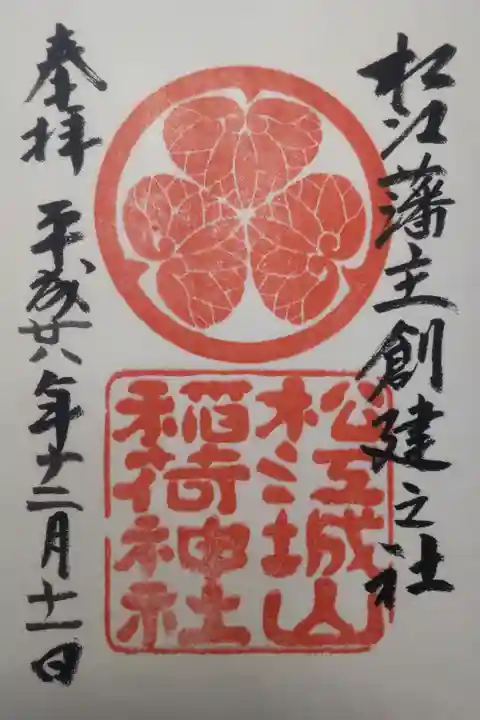 松江藩主創建之社
松江城山
稲荷神社
奉拝 平成廿八年十二月十一日